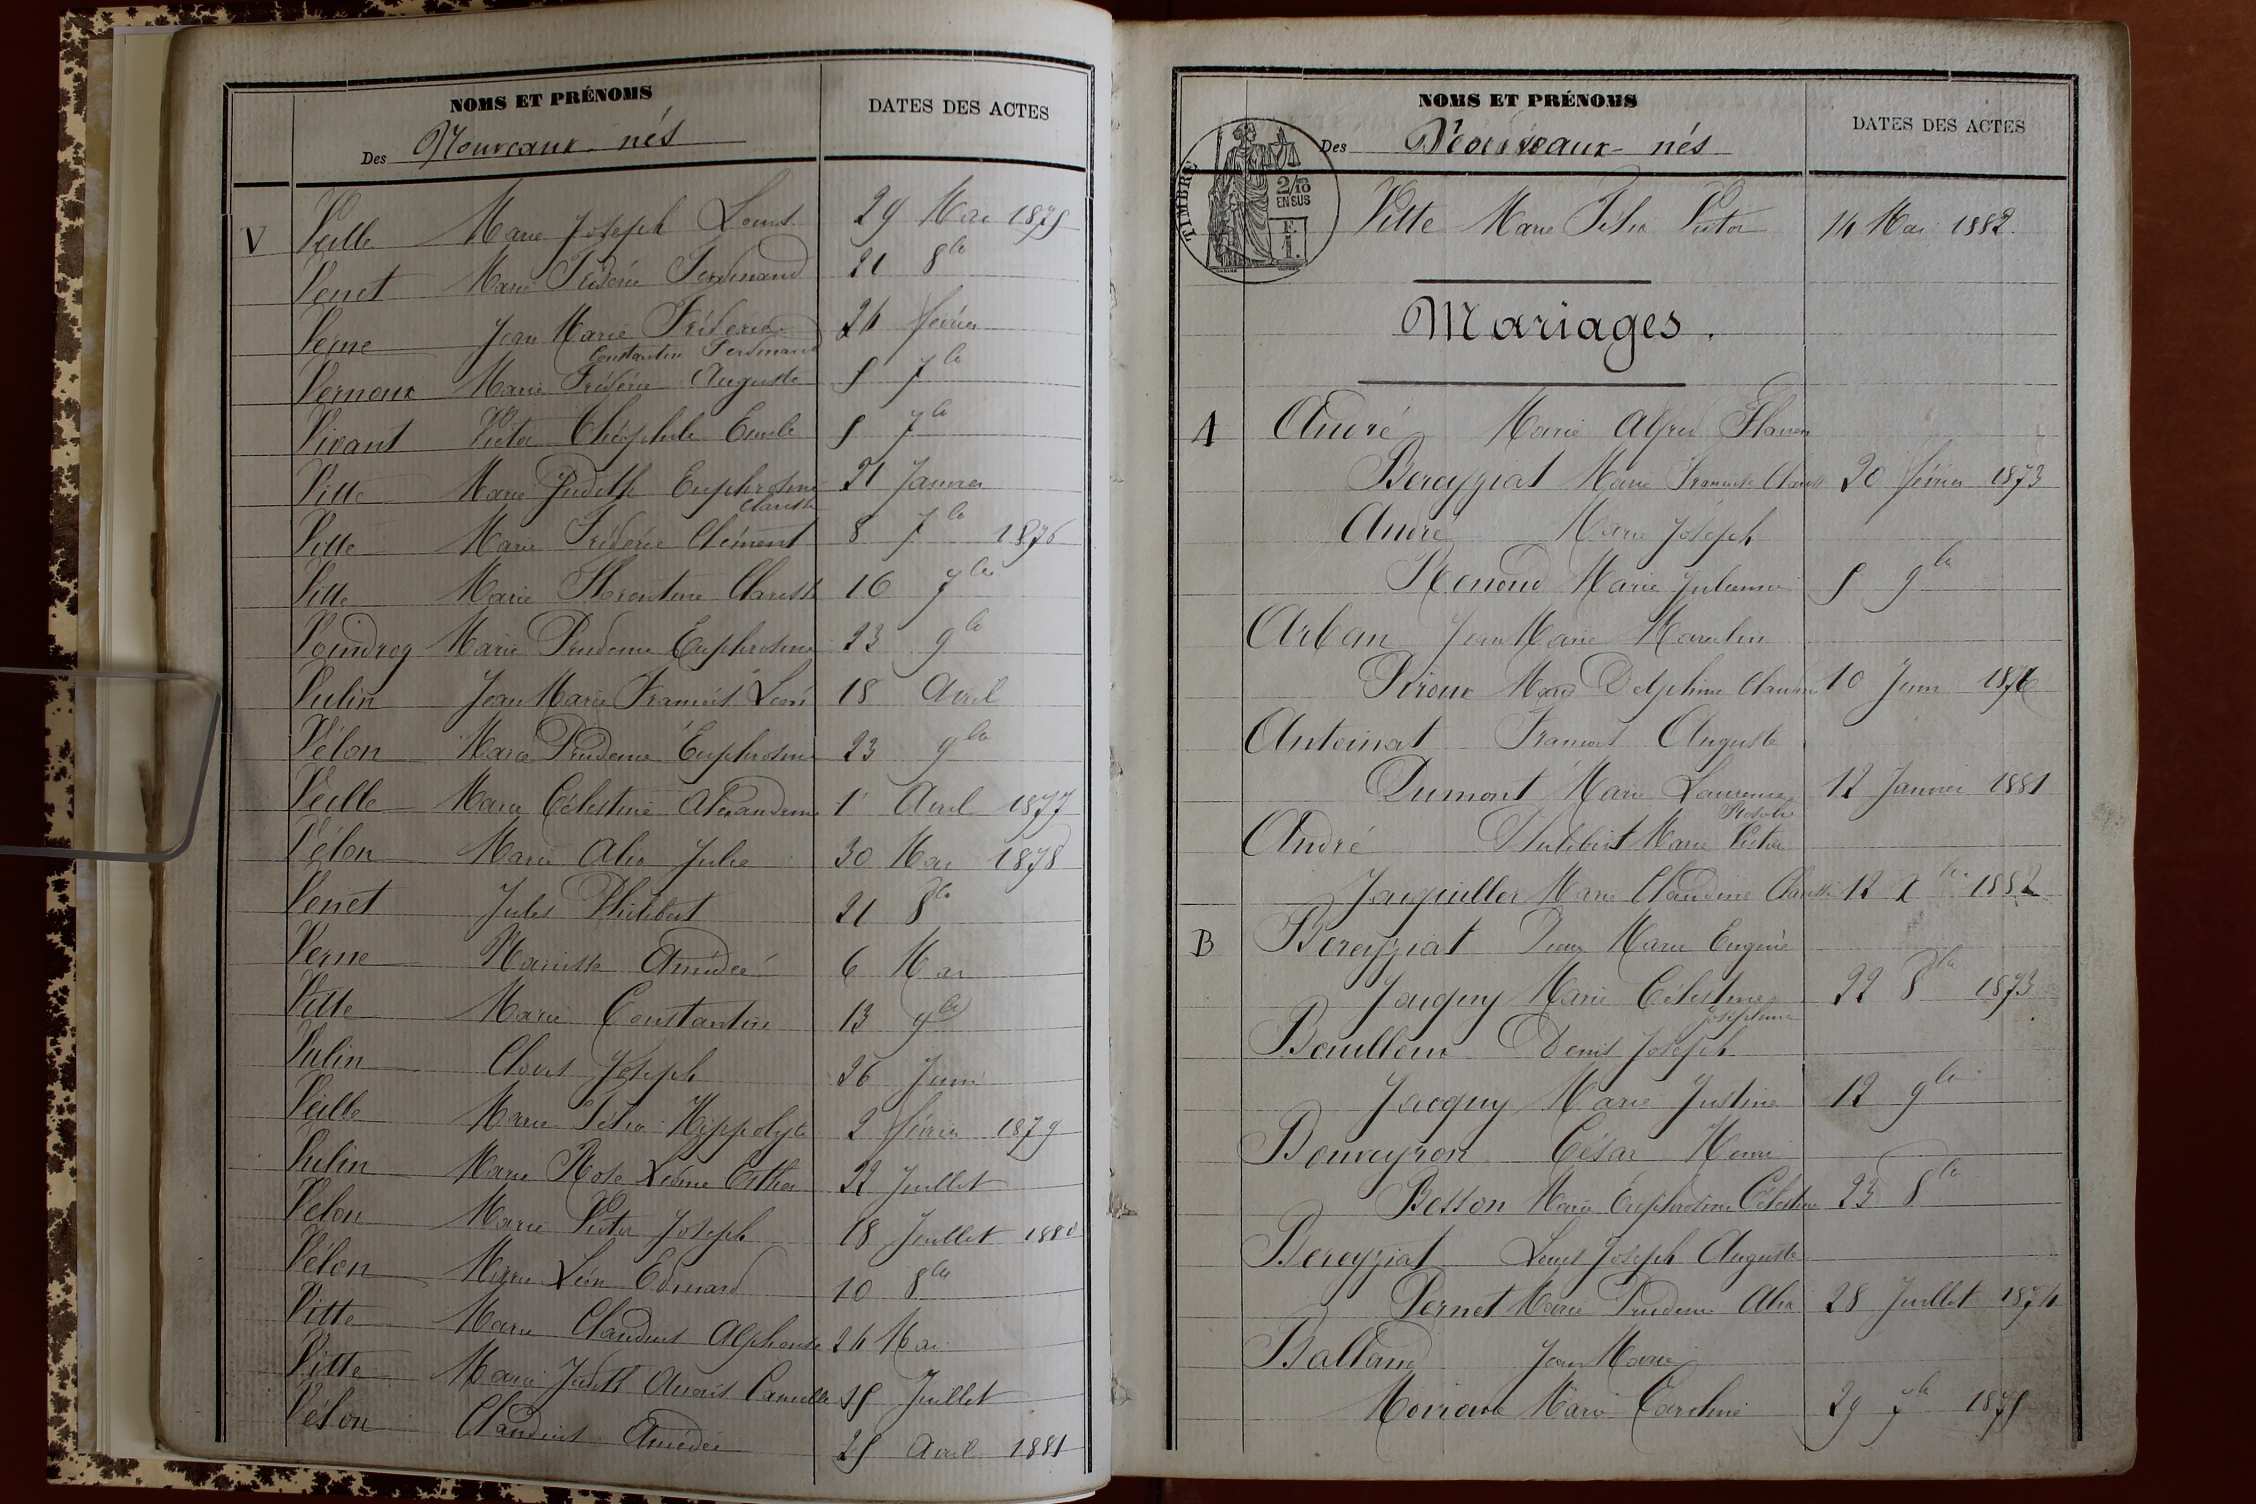 NOMS ET PRÉNOMS DATES DES ACTES
Des Nouveaux-nés
V Veille Marie Joseph Louis 29 Mai 1875
Venet Marie Frédéric Ferdinand 21 8bre
Verne Jean Marie Frédéric 24 février
Constantin Ferdinand
Vernoux Marie Frédéric Auguste 5 7bre
Vivant Victor Théophile Emile 5 7bre
Vitte Marie Judith Euphrosine 21 Janvier
Clarisse
Vitte Marie Frédéric Clément 8 7bre 1876
Vitte Marie Florentine Clarisse 16 7bre
Voindrey Marie Prudence Euphrosine 23 9bre
Vulin Jean Marie François Léon 18 Avril
Vélon Marie Prudence Euphrosine 23 9bre
Veille Marie Célestine Alexandrine 1 Avril 1877
Vélon Marie Alix Julie 30 Mai 1878
Venet Jules Philibert 21 8bre
Verne Mariette Amédée 6 Mai
Vitte Marie Constantin 13 9bre
Vulin Clovis Joseph 26 Juin
Veille Marie Félix Hippolyte 2 février 1879
Vulin Marie Rose Esther 22 Juillet
Vélon Marie Victor Joseph 18 Juillet 1880
Vélon Marie Léon Edouard 10 8bre
Vitte Marie Claudius Alphonse 24 Mai
Vitte Marie Judith Anaïs Camille 15 Juillet
Vélon Claudius Amédée 25 Avril 1881
NOMS ET PRÉNOMS DATES DES ACTES
Des nés
TIMBRE
2/10
EN SUS
F.
1.
Vitte Marie Félix Victor 14 Mai 1882.
Mariages.
A André Marie Alfred Flavien
Bereyziat Marie Françoise Clarisse 20 février 1873
André Marie Joseph
Renoud Marie Julienne 5 9bre
Arban Jean Marie
Piroux Marie Delphine Claudine 10 Juin 1876
Antoinat François Auguste
Dumont Marie Laurence 12 Janvier 1881
Rosalie
André Philibert Marie Victor
Jacquiller Marie Claudine Clarisse 12 Xbre 1882
B Bereyziat Marie Eugène
Jacquy Marie Célestine 22 8bre 1873
Joséphine
Bouilloux Denis Joseph
Jacquy Marie Justine 12 9bre
Bouveyron César Henri
Besson Marie Euphrosine Célestine 23 8bre
Bereyziat Louis Joseph Auguste
Pernet Marie Prudence Alix 28 Juillet 1874
Balland Jean Marie
Moiroux Marie Caroline 29 7bre 1875